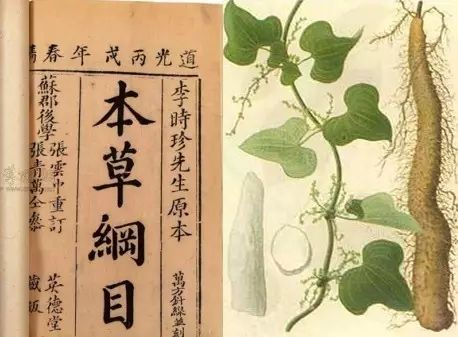 道光丙戌年春
李時珍先生原本
萬方針線並刻
本草綱目
蘇郡後學
張雲中重訂
張青萬仝參
英德堂
藏版